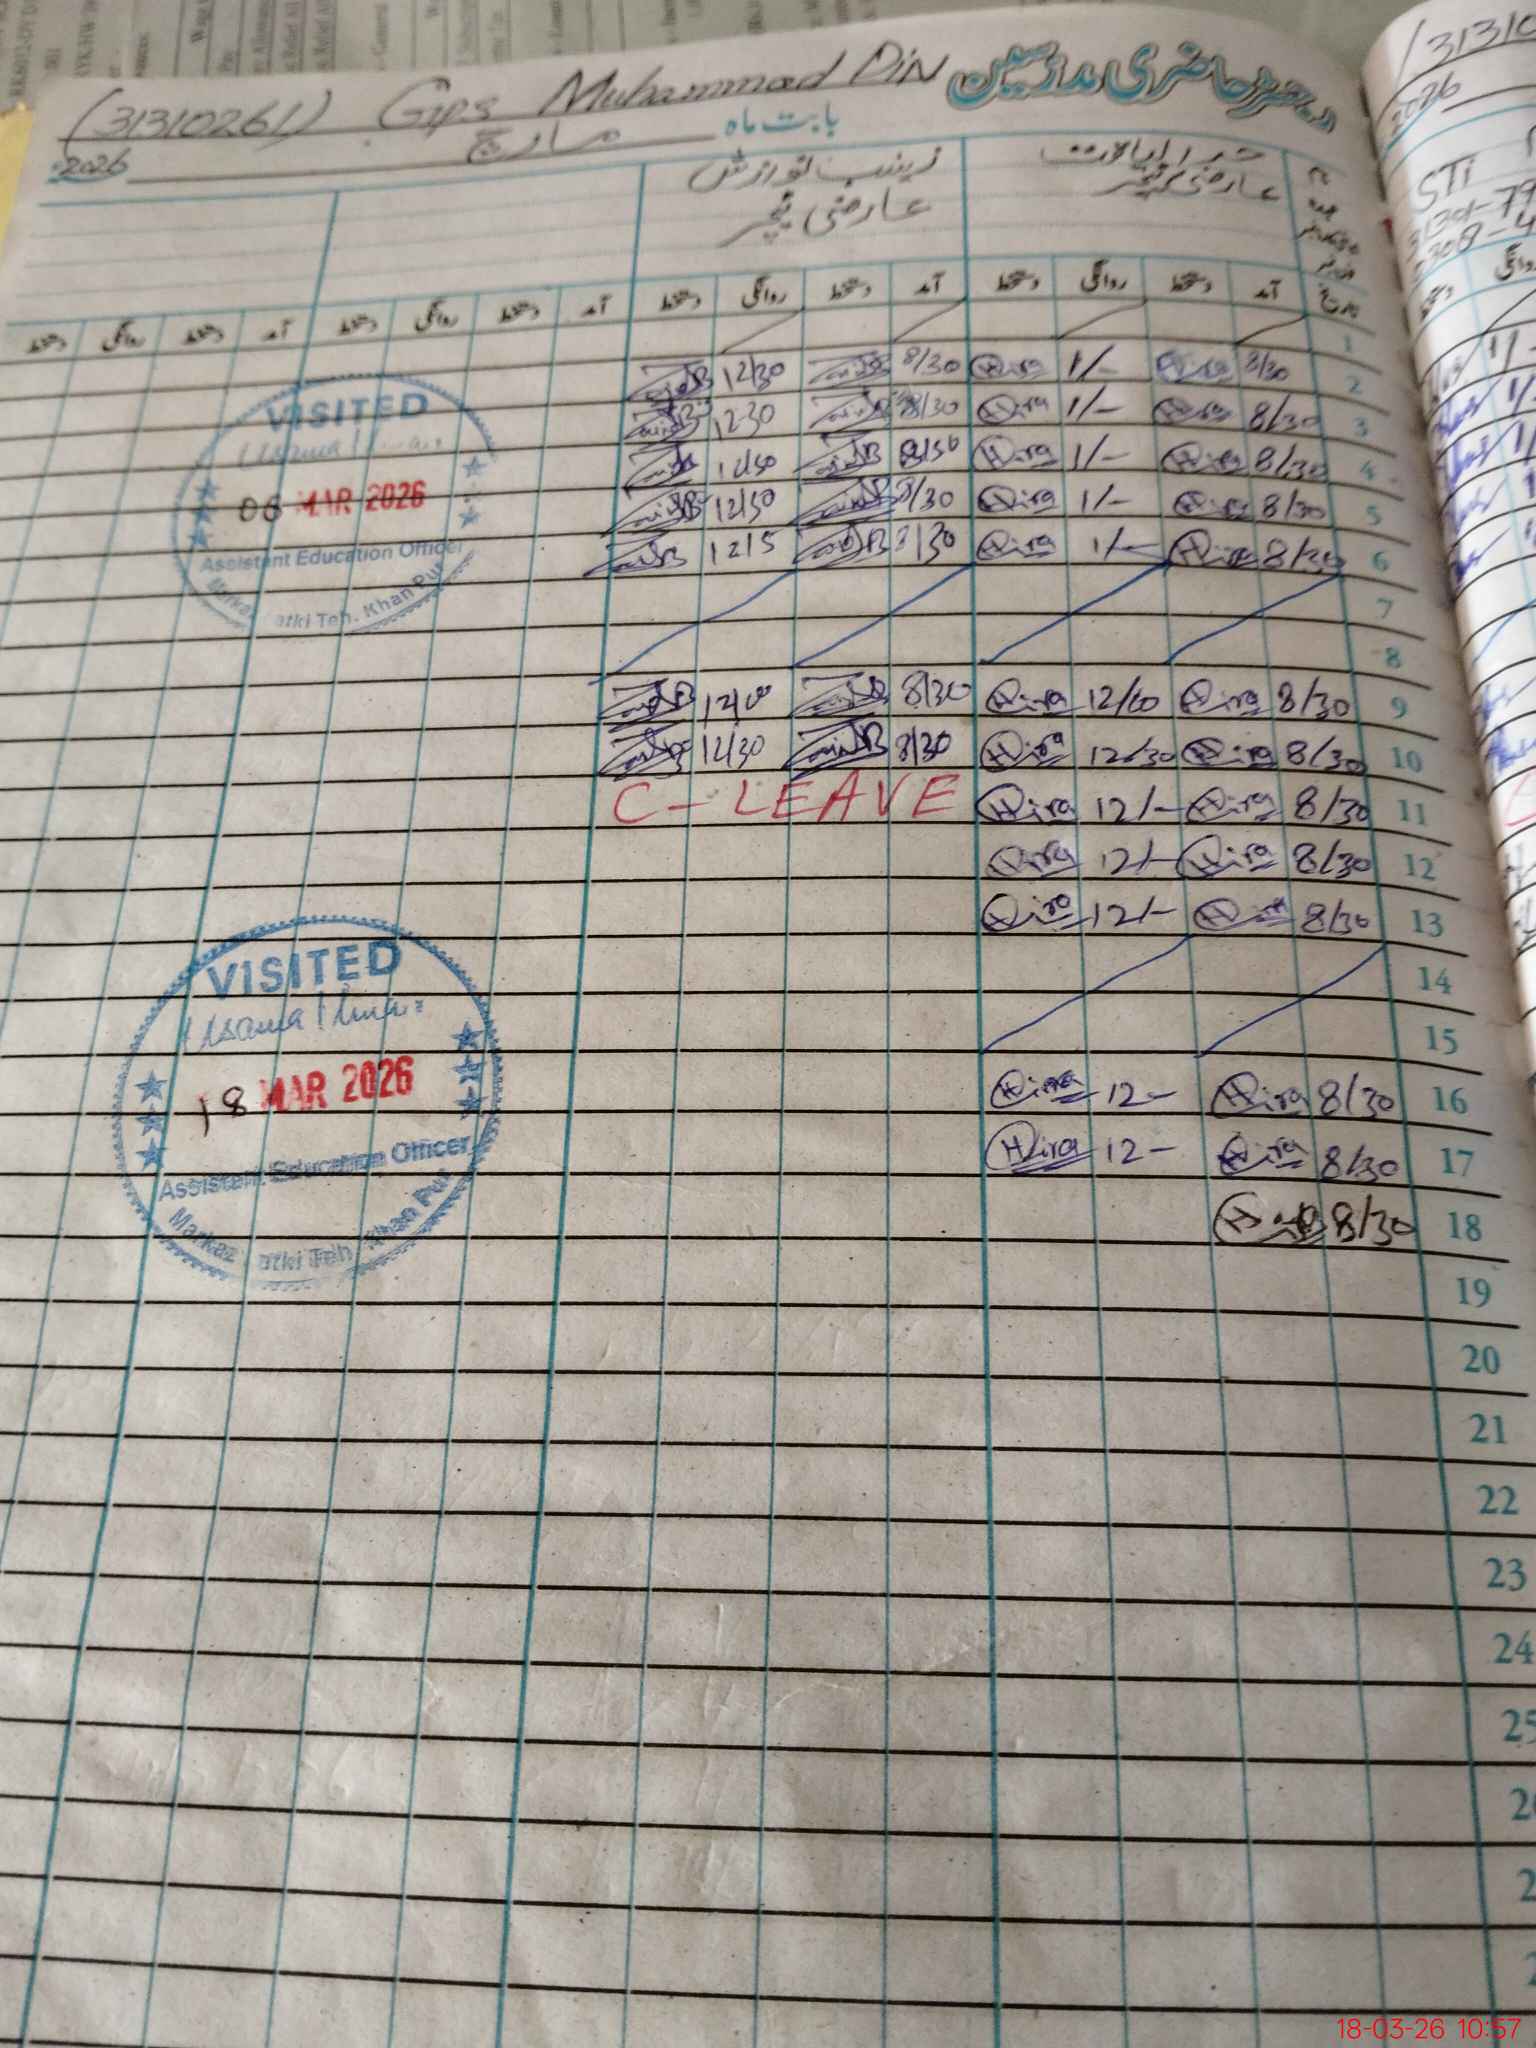 رجسٹر حاضری مدرسین
(31310261) GPS Muhammad DiN
بابت ماہ مارچ 2026
عارضی ٹیچر
زینب نوازش
عارضی ٹیچر
تاریخ آمد دستخط روانگی دستخط آمد دستخط روانگی دستخط آمد دستخط روانگی دستخط آمد دستخط روانگی دستخط
1
2 8/30 Hira 1/- Hira 8/30 12/30
3 8/30 Hira 1/- Hira 8/30 12 30
4 8/30 Hira 1/- Hira 8/30 12/30
5 8/30 Hira 1/- Hira 8/30 12/30
6 8/30 Hira 1/- Hira 8/30 1215
7
8
9 8/30 Hira 12/00 Hira 8/30 12/00
10 8/30 Hira 12/30 Hira 8/30 12/30
11 8/30 Hira 12/- Hira C-LEAVE
12 8/30 Hira 12/- Hira
13 8/30 Hira 12/- Hira
14
15
16 8/30 Hira 12- Hira
17 8/30 Hira 12- Hira
18 8/30
19
20
21
22
23
24
25
VISITED
06 MAR 2026
Assistent Education Officer
Teh. Khan Pur
VISITED
18 MAR 2026
Assistent Education Officer
Markaz Teh. Khan Pur
/31310
2026
STi
روانگی
دستخط
18-03-26 10:57